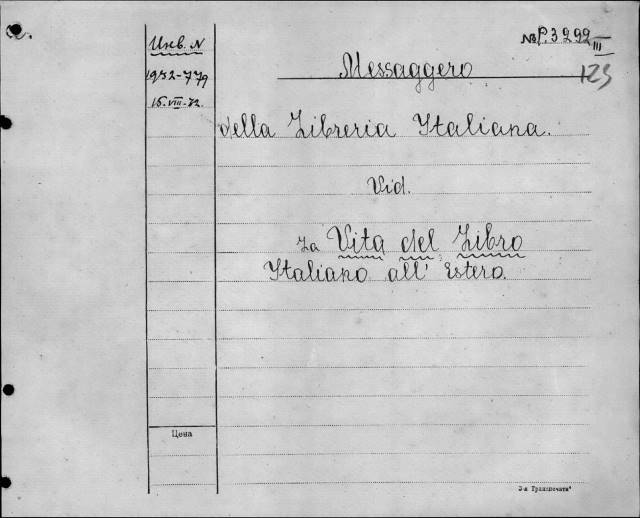 Инв. N
1932-779
15.VIII-32.
№ P.3292
III
123
Messaggero
della Libreria Italiana.
Vid.
La Vita del Libro
Italiano all' Estero.
Цена
3-я Транспечати"